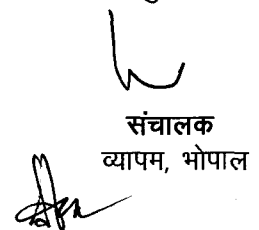 संचालक
व्यापम, भोपाल